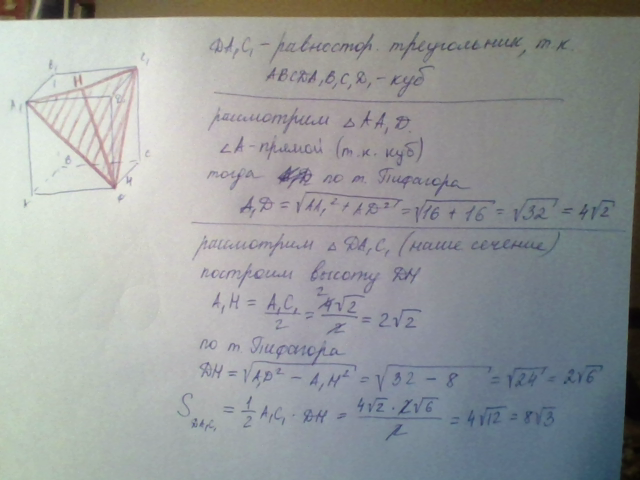 DA₁C₁ - равностор. треугольник, т.к.
ABCDA₁B₁C₁D₁ - куб
рассмотрим △ AA₁D.
∠A - прямой (т.к. куб)
тогда по т. Пифагора
A₁D = √(AA₁² + AD²) = √(16 + 16) = √32 = 4√2
рассмотрим △ DA₁C₁ (наше сечение)
построим высоту DH
A₁H = A₁C₁/2 = 4√2/2 = 2√2
по т. Пифагора
DH = √(A₁D² - A₁H²) = √(32 - 8) = √24 = 2√6
S DA₁C₁ = 1/2 A₁C₁ · DH = 4√2 · 2√6/2 = 4√12 = 8√3
B₁
C₁
H
A₁
D₁
B
C
4